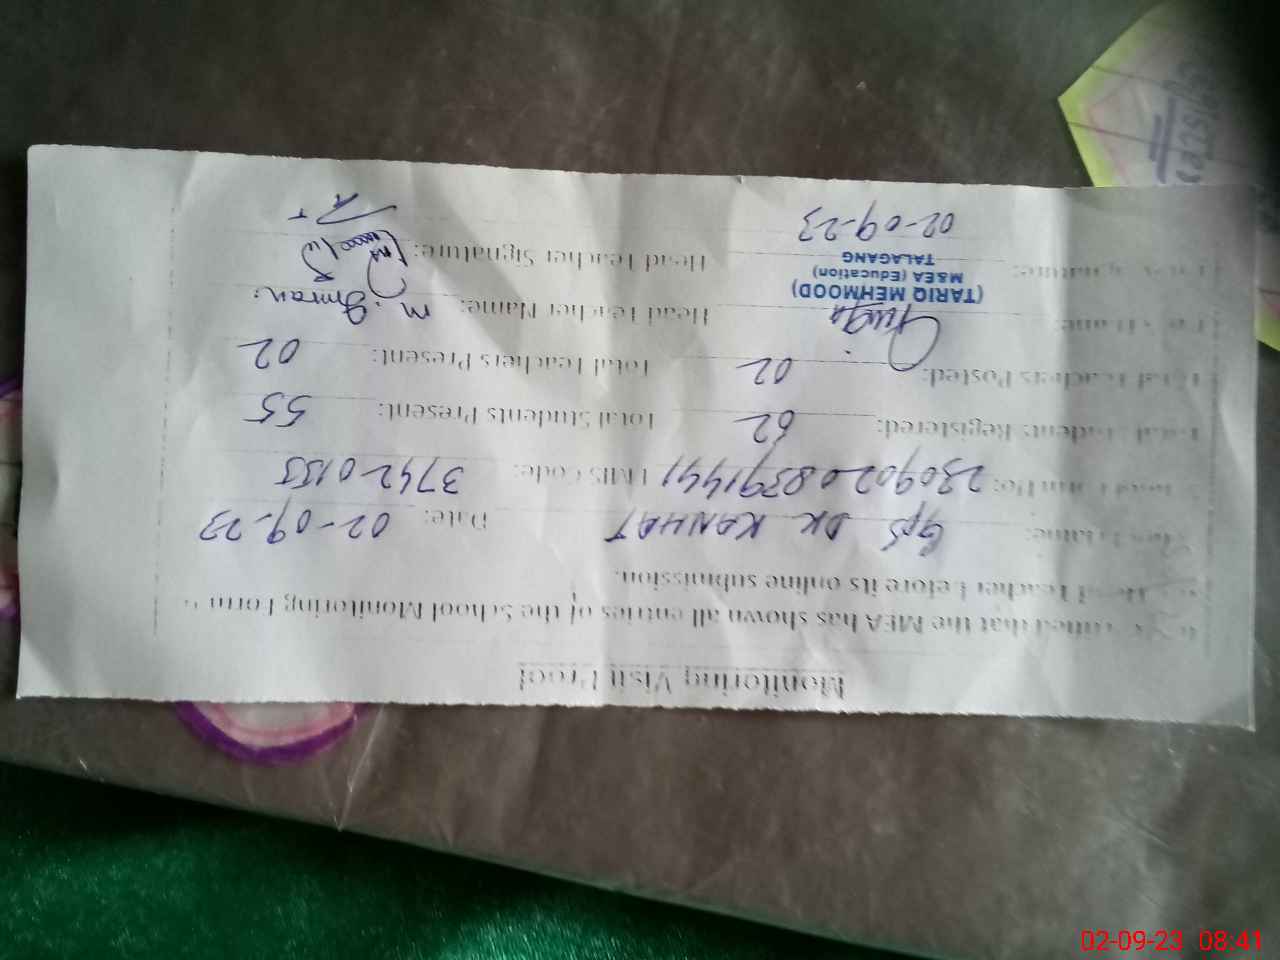 Monitoring Visit Proof
that the MEA has shown all entries of the School Monitoring Form
Head Teacher before its online submission.
Name: GPS DK KANHAT Date: 02-09-23
EMIS Code: 37420155
Students Registered: 62 Total Students Present: 55
Total Teachers Posted: 02 Total Teachers Present: 02
Name: Head Teacher Name: M. Imran.
(TARIQ MEHMOOD)
M&EA (Education)
TALAGANG
Signature: Head Teacher Signature:
02-09-23
02-09-23 08:41